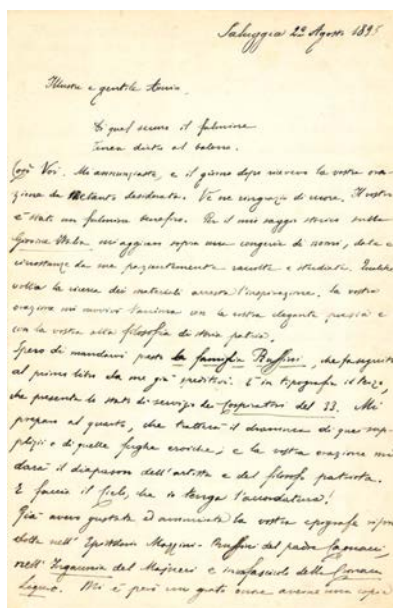 Saluggia 29 Agosto 1895
Illustre e gentile Amico.
Di quel securo il fulmine
Tenea dietro al baleno.
Così Voi. Mi annunziaste, e il giorno dopo ricevevo la vostra ora-
zione da tanto desiderata. Ve ne ringrazio di cuore. Il vostro
è stato un fulmine benefico. Per il mio saggio storico sulla
Giovine Italia mi aggiravo sopra una congerie di nomi, date e
circostanze da me pazientemente raccolte e studiate. Qualche
volta la ricerca dei materiali arresta l'inspirazione. La vostra
orazione mi ravviva l'anima con la vostra elegante poesia e
con la vostra alta filosofia di storia patria.
Spero di mandarvi presto la famiglia Ruffini, che fa seguito
al primo libro da me già speditovi. È in tipografia il terzo,
che presenta lo stato di servizio dei Cospiratori del 33. Mi
preparo al quarto, che tratterà il dramma di quei sup-
plizii e di quelle fughe eroiche; e la vostra orazione mi
darà il diapason dell'artista e del filosofo patriota.
E faccia il Cielo, che io tenga l'accordatura!
Già avevo gustata ed annunciata la vostra epigrafe ripro-
dotta nell'Epistolario Mazzini-Ruffini del padre
nell'Ingaunia del e in fascicolo della
Ligure. Mi è però un grato onore averne una copia